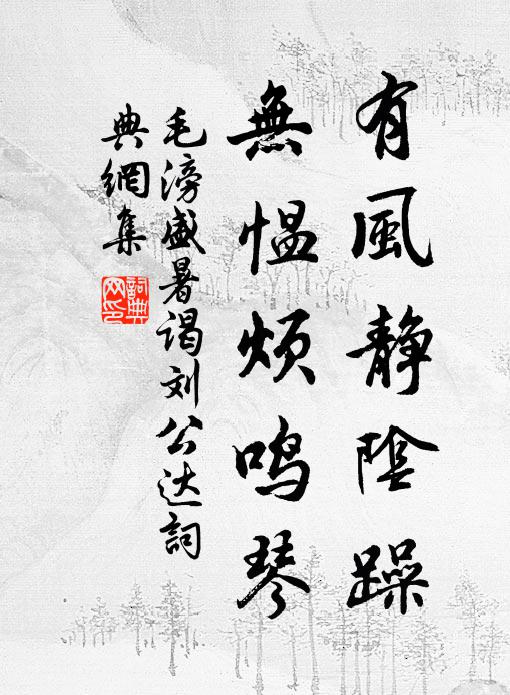 有風静陰躁
無愠煩鳴琴
毛滂盛暑谒刘公达詞
典網集
詞典网印